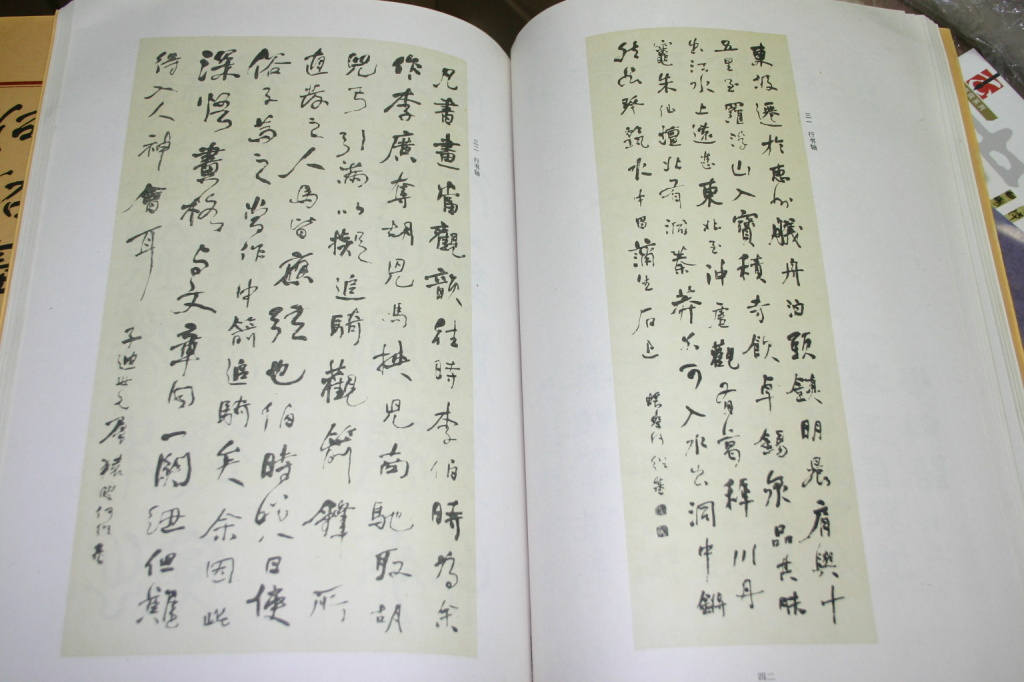 三一 行书轴
東坡遷於惠州艤舟泊頭鎮明晨肩輿十
五里至羅浮山入寶積寺飲卓錫泉品其味
出江水上遠甚東北至沖虛觀有葛稚川丹
竈朱仙壇北有洞蓁莽不可入水出洞中鏘
然如琴筑水中菖蒲生石上
蝯叟何紹基
四二
三二 行书轴
凡書畫當觀韻往時李伯時為余
作李廣奪胡兒馬挾兒南馳取胡
兒弓引滿以擬追騎觀箭鋒所
直發之人馬皆應弦也伯時笑曰使
俗子為之當作中箭追騎矣余因此
深悟畫格与文章同一關紐但難
得入人神會耳
子迪世兄屬 蝯叟何紹基